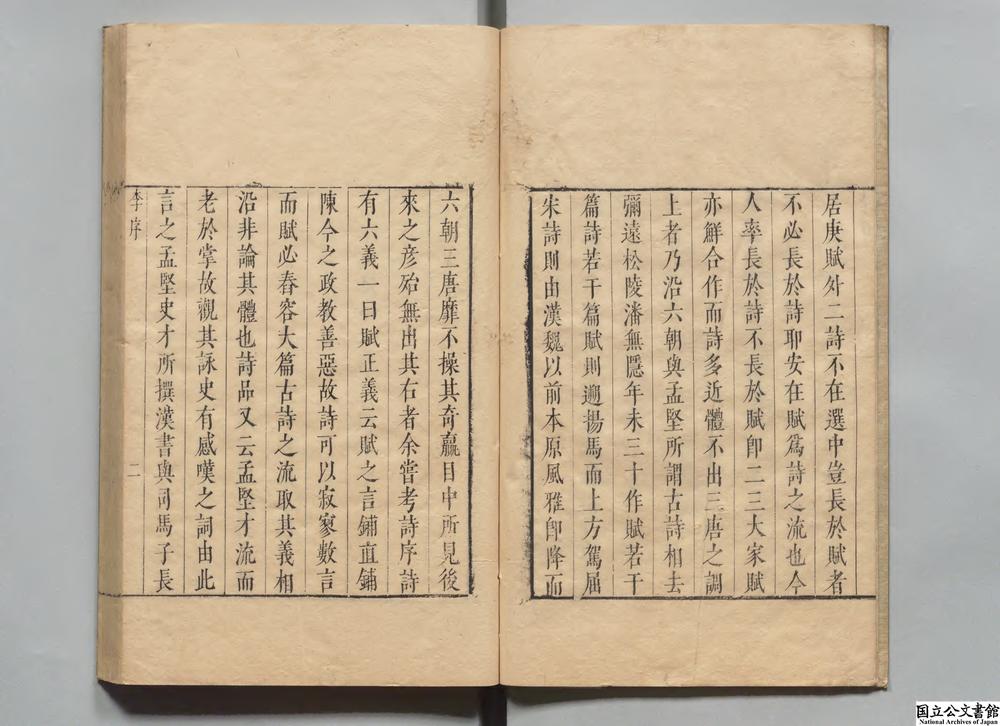 居庚賦外二詩不在選中豈長於賦者
不必長於詩耶安在賦爲詩之流也今
人率長於詩不長於賦卽二三大家賦
亦鮮合作而詩多近體不出三唐之調
上者乃沿六朝與孟堅所謂古詩相去
彌遠松陵潘無隱年未三十作賦若干
篇詩若干篇賦則遡揚馬而上方駕屈
宋詩則由漢魏以前本原風雅卽降而
六朝三唐靡不操其奇贏目中所見後
來之彥殆無出其右者余嘗考詩序詩
有六義一曰賦正義云賦之言鋪直鋪
陳今之政教善惡故詩可以寂寥數言
而賦必舂容大篇古詩之流取其義相
沿非論其體也詩品又云孟堅才流而
老於掌故觀其詠史有感嘆之詞由此
言之孟堅史才所撰漢書與司馬子長
李序
二
国立公文書館
National Archives of Japan